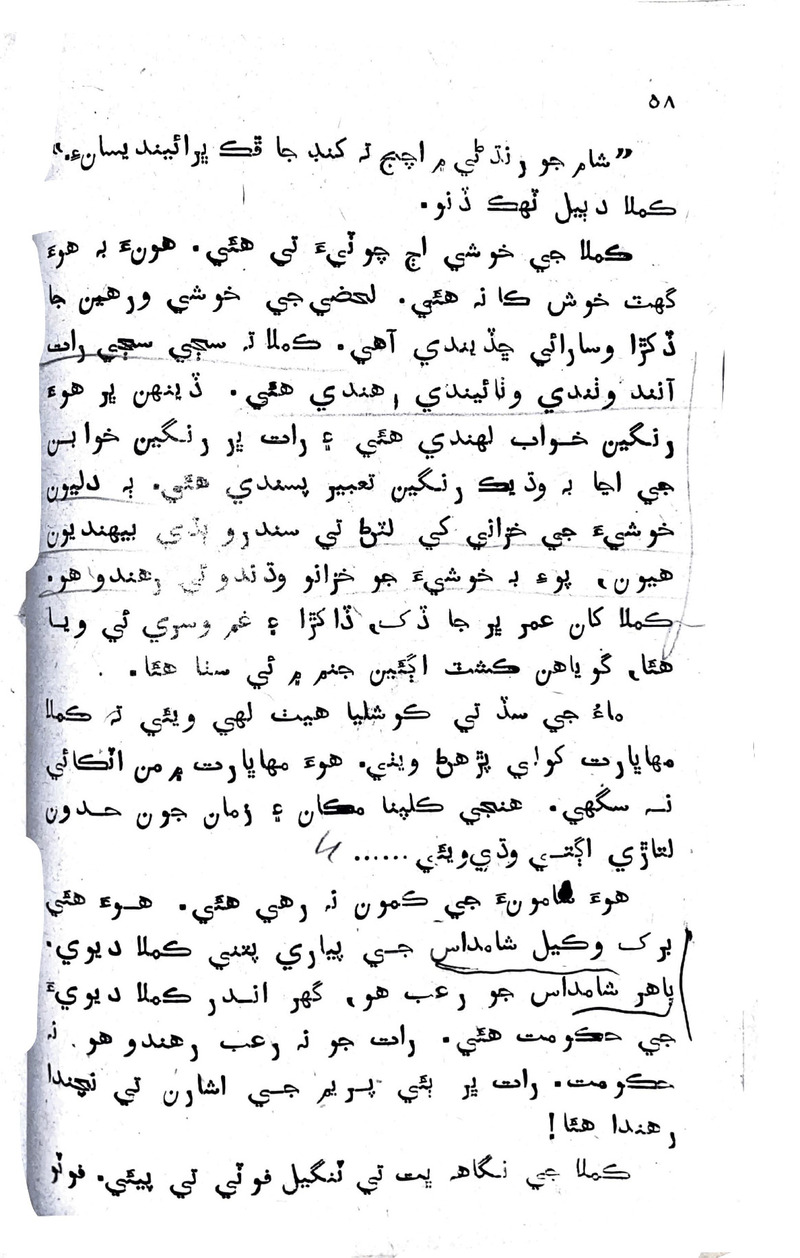 ٥٨
”شام جو رنڌڻي ۾ اچج تہ کنڊ جا ڦڪ ڀرائيندیسانءِ.“
ڪملا دٻيل ٽهڪ ڏنو.
ڪملا جي خوشي اڄ چوٽيءَ تي هئي. هونءَ بہ هوءَ
گهٽ خوش ڪا نہ هئي. لحضي جي خوشي ورهين جا
ڏکڙا وسارائي ڇڏيندي آهي. ڪملا تہ سڄي سڄي رات
آنند وٺندي وٺائيندي رهندي هئي. ڏينهن ڀر هوءَ
رنگين خواب لهندي هئي ۽ رات ڀر رنگين خوابن
جي اڃا بہ وڌيڪ رنگين تعبير پسندي هئي. ٻہ دليون
خوشيءَ جي خزاني کي لٽڻ تي سندرو ٻڌي بيهنديون
هيون، پوءِ بہ خوشيءَ جو خزانو وڌندو ئي رهندو هو.
ڪملا کان عمر ڀر جا ڏک، ڏاکڙا ۽ غم وسري ئي ويا
هئا، گوياهن ڪشٽ اڳئين جنم ۾ ئي سٺا هئا.
ماءُ جي سڏ تي ڪوشليا هيٺ لهي ويئي تہ ڪملا
مهاڀارت کولي پڙهڻ ويٺي. هوءَ مهاڀارت ۾ من اٽڪائي
نہ سگهي. هنجي ڪلپنا مڪان ۽ زمان جون حدون
لتاڙي اڳتي وڌي ويئي......
هوءَ مامونءَ جي ڪمون نہ رهي هئي. هوءَ هئي
برک وڪيل شامداس جي پياري پتني ڪملا ديوي.
ٻاهر شامداس جو رعب هو، گهر اندر ڪملا ديويءَ
جي حڪومت هئي. رات جو نہ رعب رهندو هو نہ
حڪومت. رات ڀر ٻئي پريم جي اشارن تي نچندا
رهندا هئا!
ڪملا جي نگاهہ ڀت تي ٽنگيل فوٽي تي پيئي. فوٽو